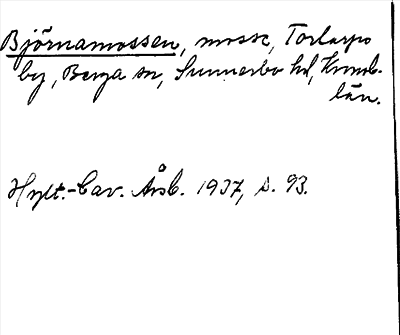 Björnamossen, mosse, Torlarps
by, Berga sn, Sunnerbo hd, Kronob.
län.
Hylt.-Cav. Årsb. 1937, s. 93.